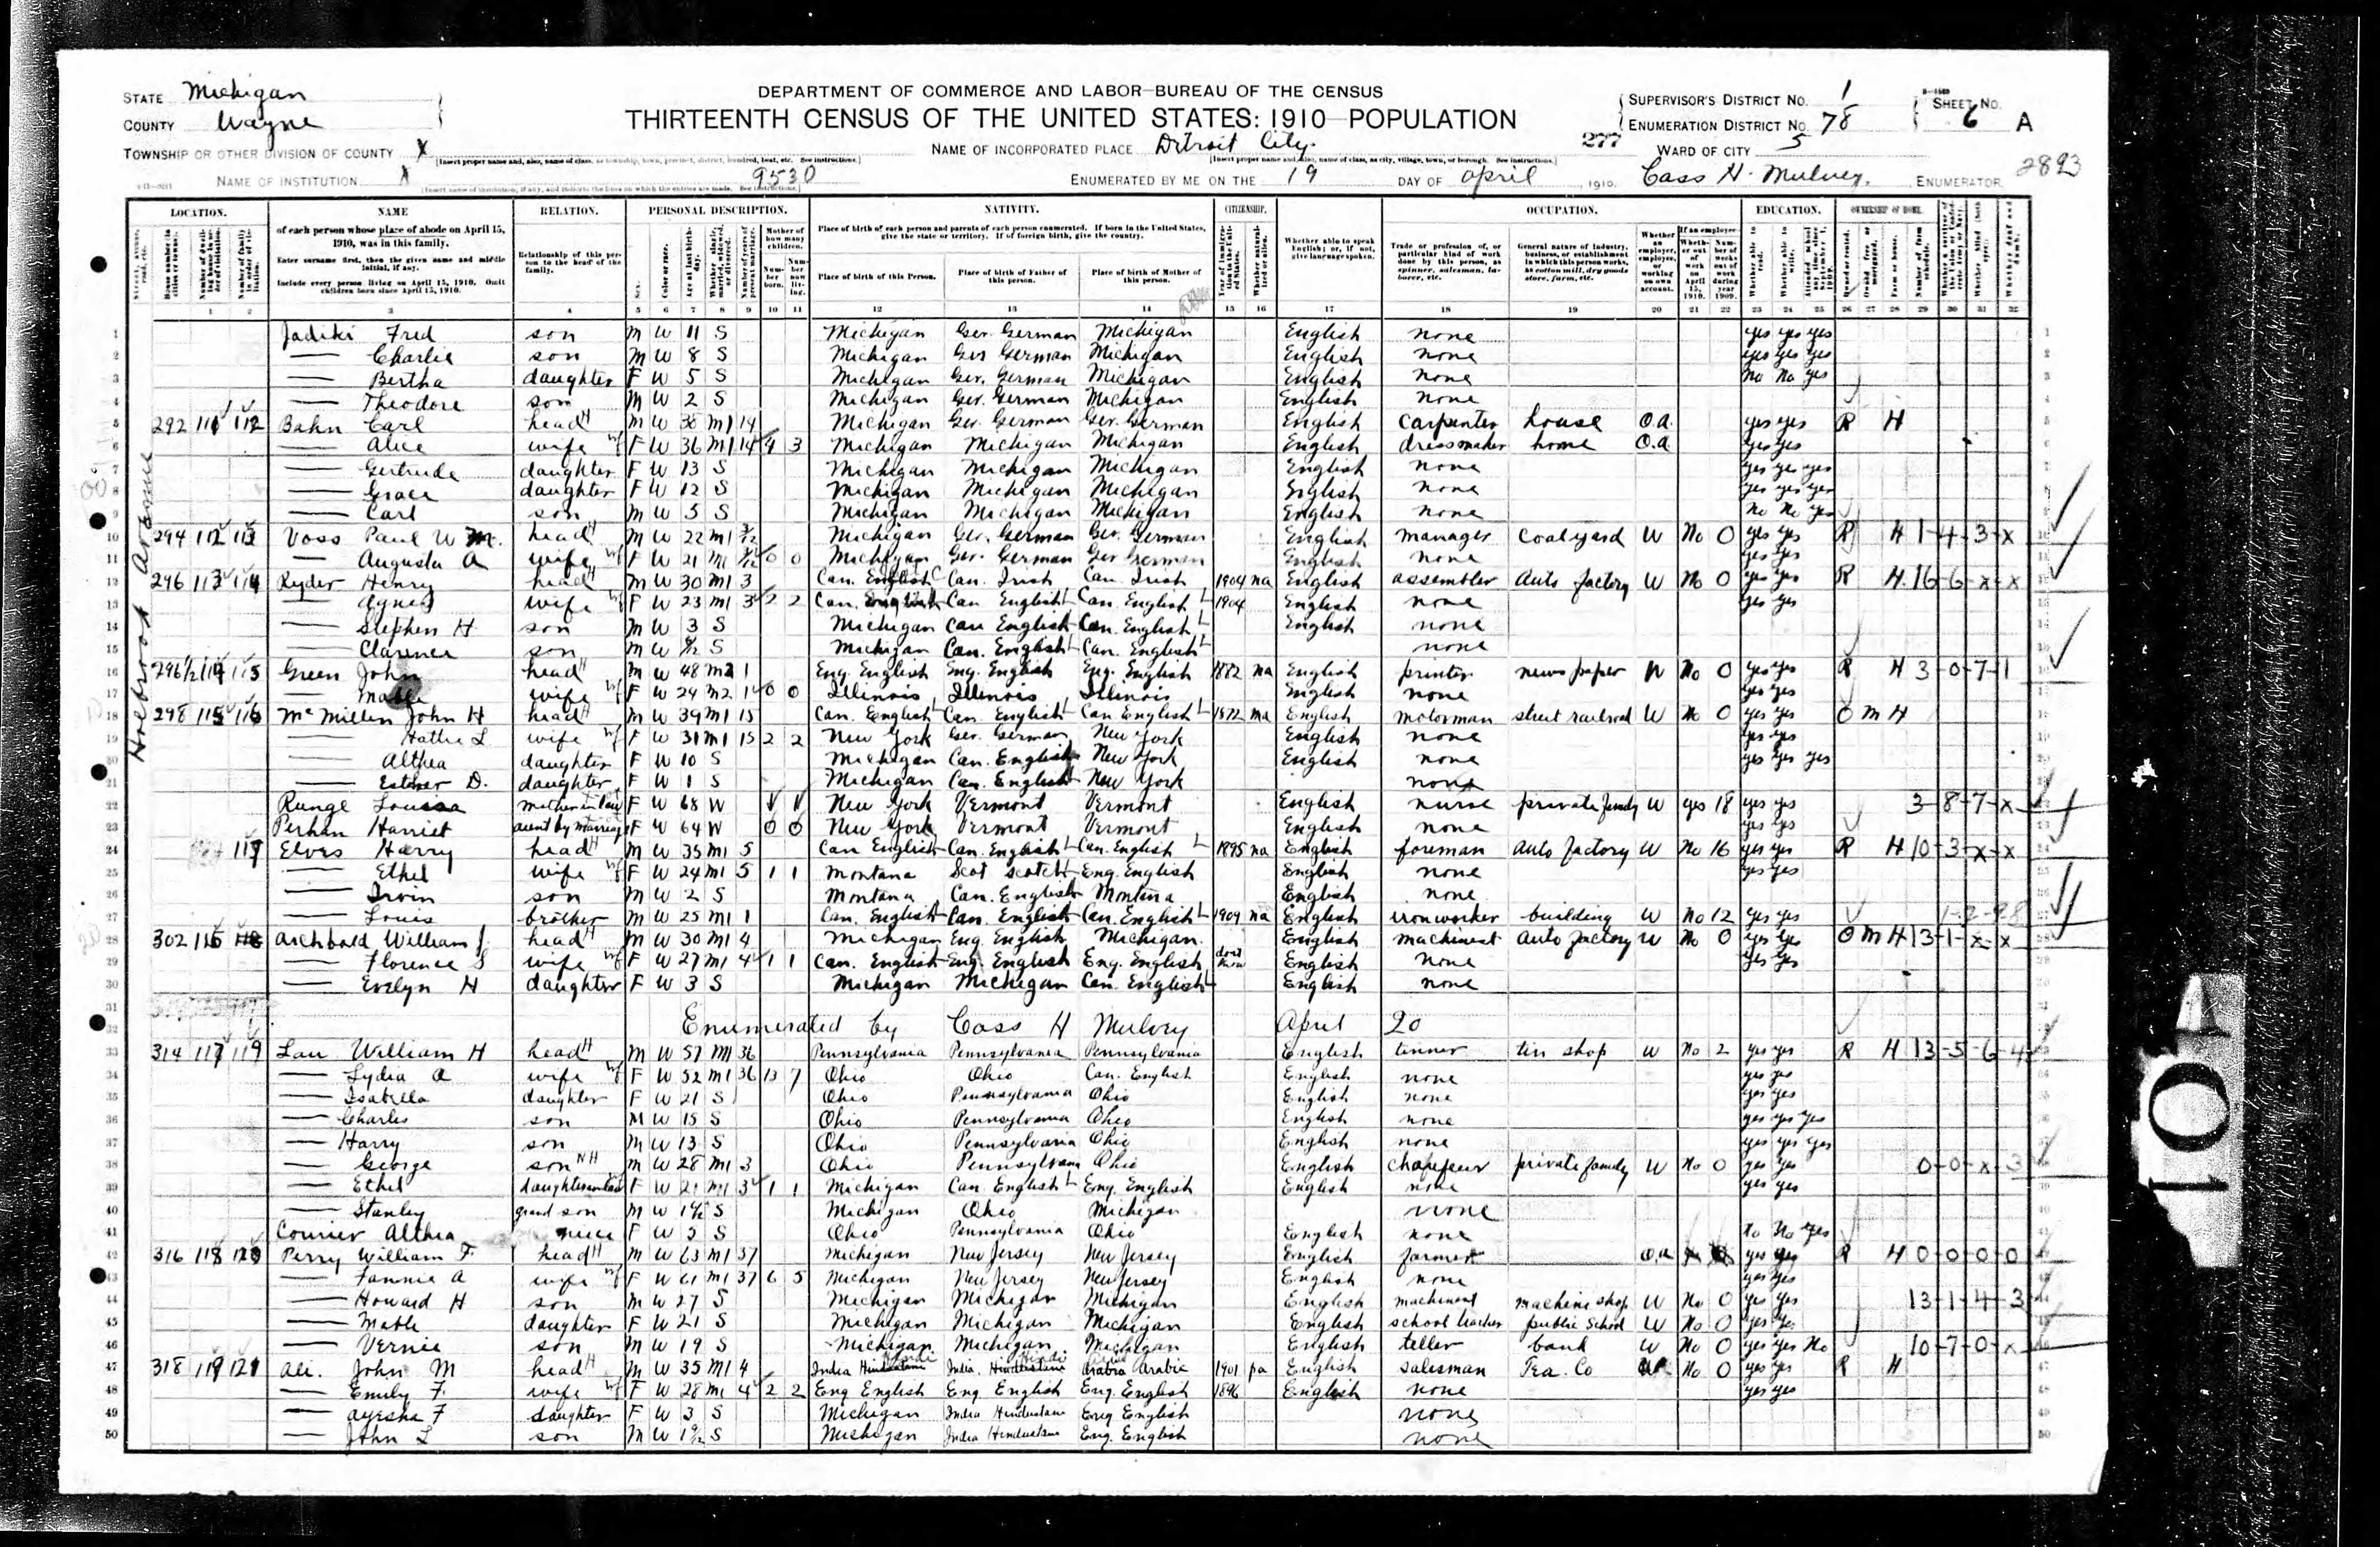 DEPARTMENT OF COMMERCE AND LABOR—BUREAU OF THE CENSUS
THIRTEENTH CENSUS OF THE UNITED STATES: 1910—POPULATION
STATE Michigan
COUNTY Wayne
TOWNSHIP OR OTHER DIVISION OF COUNTY X
[Insert proper name and, also, name of class, as township, town, precinct, district, hundred, beat, etc. See instructions.]
NAME OF INSTITUTION X
9530
NAME OF INCORPORATED PLACE Detroit City.
[Insert proper name and, also, name of class, as city, village, town, or borough. See instructions.]
ENUMERATED BY ME ON THE 19 DAY OF April 1910. Cass H. Mulvey, ENUMERATOR
SUPERVISOR'S DISTRICT No. 1
ENUMERATION DISTRICT No. 78
SHEET No. 6 A
277 WARD OF CITY 5
2893
LOCATION. NAME RELATION. PERSONAL DESCRIPTION. NATIVITY. CITIZENSHIP. OCCUPATION. EDUCATION. OWNERSHIP OF HOME.
of each person whose place of abode on April 15, 1910, was in this family.
Enter surname first, then the given name and middle initial, if any.
Include every person living on April 15, 1910. Omit children born since April 15, 1910.
Relationship of this person to the head of the family.
Place of birth of each person and parents of each person enumerated. If born in the United States, give the state or territory. If of foreign birth, give the country.
Place of birth of this Person. Place of birth of Father of this person. Place of birth of Mother of this person.
Whether able to speak English; or, if not, give language spoken.
Trade or profession of, or particular kind of work done by this person, as spinner, salesman, laborer, etc.
General nature of industry, business, or establishment in which this person works, as cotton mill, dry goods store, farm, etc.
Holebrook Avenue
1 Jadiki Fred son M W 11 S Michigan Ger. German Michigan English none yes yes yes
2 — Charlie son M W 8 S Michigan Ger German Michigan English none yes yes yes
3 — Bertha daughter F W 5 S Michigan Ger. German Michigan English none No No yes
4 — Theodore son M W 2 S Michigan Ger. German Michigan English none
5 292 111 112 Bahn Carl head M W 38 M1 14 Michigan Ger. German Ger. German English carpenter house O.a. yes yes R H
6 — Alice wife F W 36 M1 14 4 3 Michigan Michigan Michigan English dressmaker home O.a yes yes
7 — Gertrude daughter F W 13 S Michigan Michigan Michigan English none yes yes yes
8 — Grace daughter F W 12 S Michigan Michigan Michigan English none yes yes yes
9 — Carl son M W 5 S Michigan Michigan Michigan English none No No yes
10 294 112 113 Voss Paul W M. head M W 22 M1 Michigan Ger. German Ger. German English manager coalyard W No 0 yes yes R H 1-4-3-x
11 — Augusta A wife F W 21 M1 0 0 Michigan Ger. German Ger German English none yes yes
12 296 113 114 Ryder Henry head M W 30 M1 3 Can. English Can. Irish Can. Irish 1904 na English assembler Auto factory W No 0 yes yes R H 16-6-x-x
13 — Agnes wife F W 23 M1 3 2 2 Can. English Can English Can. English 1904 English none yes yes
14 — Stephen H son M W 3 S Michigan Can English Can. English English none
15 — Clarence son M W S Michigan Can. English Can. English none
16 296½ 114 115 Green John head M W 48 M2 1 Eng. English Eng. English Eng. English 1882 na English printer news paper W No 0 yes yes R H 3-0-7-1
17 — Mable wife F W 24 M2 1 0 0 Illinois Illinois Illinois English none yes yes
18 298 115 116 McMillen John H head M W 39 M1 15 Can. English Can. English Can. English 1872 na English motorman street railroad W No 0 yes yes O M H
19 — Hattie L wife F W 31 M1 15 2 2 New York Ger. German New York English none yes yes
20 — Althea daughter F W 10 S Michigan Can. English New York English none yes yes yes
21 — Esther D. daughter F W 1 S Michigan Can. English New York none
22 Runge Louisa mother in law F W 68 W New York Vermont Vermont English nurse private family W yes 18 yes yes 3-8-7-x
23 Perhan Harriet aunt by marriage F W 64 W 0 0 New York Vermont Vermont English none yes yes
24 117 Elves Harry head M W 35 M1 5 Can English Can. English Can. English 1895 na English foreman Auto factory W No 16 yes yes R H 10-3-x-x
25 — Ethel wife F W 24 M1 5 1 1 Montana Scot Scotch Eng. English English none yes yes
26 — Irvin son M W 2 S Montana Can. English Montana English none
27 — Louis brother M W 25 M1 1 Can. English Can. English Can. English 1909 na English ironworker building W No 12 yes yes 1-2-98
28 302 116 118 Archbald William J. head M W 30 M1 4 Michigan Eng. English Michigan English machinest Auto factory W No 0 yes yes O M H 13-1-x-x
29 — Florence S wife F W 27 M1 4 1 1 Can. English Eng. English Eng. English dont know English none yes yes
30 — Evelyn H daughter F W 3 S Michigan Michigan Can. English English none
31
32 Enumerated by Cass H Mulvey April 20
33 314 117 119 Lau William H head M W 57 M1 36 Pennsylvania Pennsylvania Pennsylvania English tinner tin shop W No 2 yes yes R H 13-5-6-4
34 — Lydia A wife F W 52 M1 36 13 7 Ohio Ohio Can. English English none yes yes
35 — Isabella daughter F W 21 S Ohio Pennsylvania Ohio English none yes yes
36 — Charles son M W 15 S Ohio Pennsylvania Ohio English none yes yes yes
37 — Harry son M W 13 S Ohio Pennsylvania Ohio English none yes yes yes
38 — George son NH M W 28 M1 3 Ohio Pennsylvania Ohio English chauffeur private family W No 0 yes yes 0-0-x-3
39 — Ethel daughter in law F W 21 M1 3 1 1 Michigan Can. English Eng. English English none yes yes
40 — Stanley grand son M W S Michigan Ohio Michigan none
41 Courier Althea niece F W 5 S Ohio Pennsylvania Ohio English none No No yes
42 316 118 120 Perry William F. head M W 63 M1 37 Michigan New Jersey New Jersey English farmer O.a yes yes R H 0-0-0-0
43 — Fannie A wife F W 61 M1 37 6 5 Michigan New Jersey New Jersey English none yes yes
44 — Howard H son M W 27 S Michigan Michigan Michigan English machinest machine shop W No 0 yes yes 13-1-4-3
45 — Mable daughter F W 21 S Michigan Michigan Michigan English school teacher public school W No 0 yes yes
46 — Vernie son M W 19 S Michigan Michigan Michigan English teller bank W No 0 yes yes No 10-7-0-x
47 318 119 121 Ali. John M head M W 35 M1 4 India Hindustani India. Hindustani Arabia Arabic 1901 pa English salesman Tea. Co W No 0 yes yes R H
48 — Emily F. wife F W 28 M1 4 2 2 Eng English Eng. English Eng. English 1896 English none yes yes
49 — Ayesha F daughter F W 3 S Michigan India Hindustani Eng English none
50 — John L son M W S Michigan India Hindustani Eng. English none
101